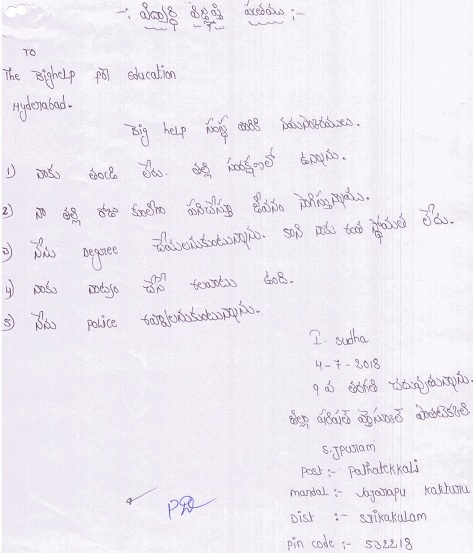 -: విద్యార్థి విజ్ఞప్తి పత్రము :-
TO
The Bighelp for Education
Hyderabad.
Big help సంస్థ వారికి నమస్కారములు.
1) నాకు తండ్రి లేరు. తల్లి సంరక్షణలో ఉన్నాను.
2) నా తల్లి రోజు కూలీగా పనిచేస్తూ జీవనం సాగిస్తున్నాము.
3) నేను Degree చేయాలనుకుంటున్నాను. కాని నాకు అంత స్తోమత లేదు.
4) నాకు నాట్యం చేసే అలవాటు ఉంది.
5) నేను police అవ్వాలనుకుంటున్నాను.
I. Sudha
4-7-2018
9 వ తరగతి చదువుతున్నాను.
జిల్లా పరిషత్ హైస్కూల్ పాతటెక్కలి
S.Jpuram
Post :- Pathatekkali
mandal :- Vajarapu kotturu
Dist :- Srikakulam
Pin code :- 532218